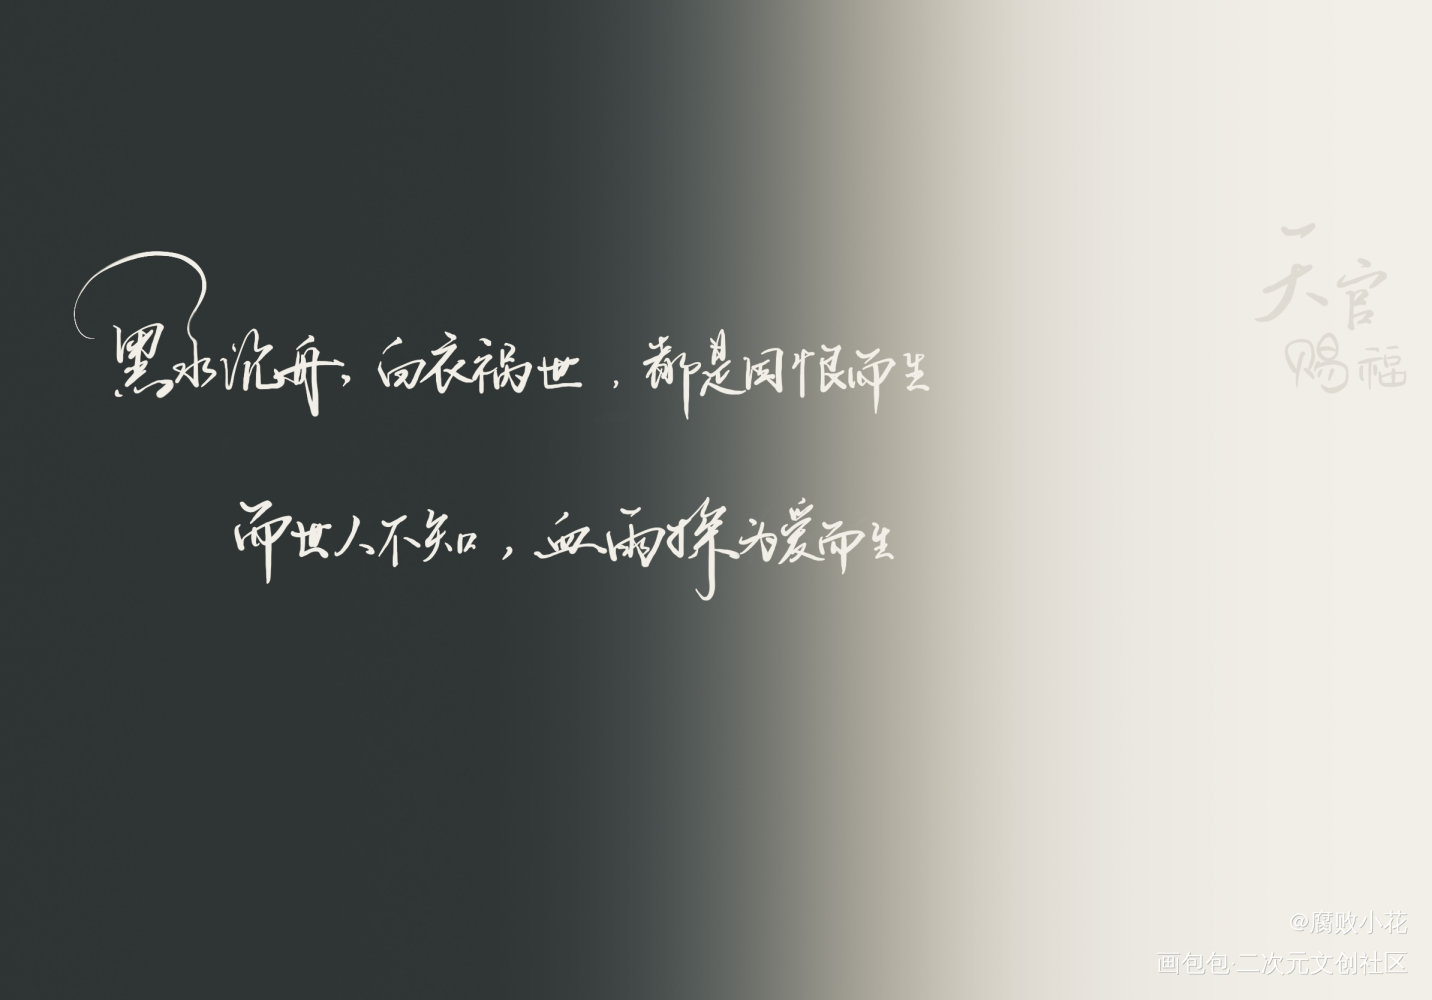 黑水沉舟，白衣祸世，都是因恨而生
而世人不知，血雨探为爱而生
天官
赐福
@腐败小花
画包包·二次元文创社区